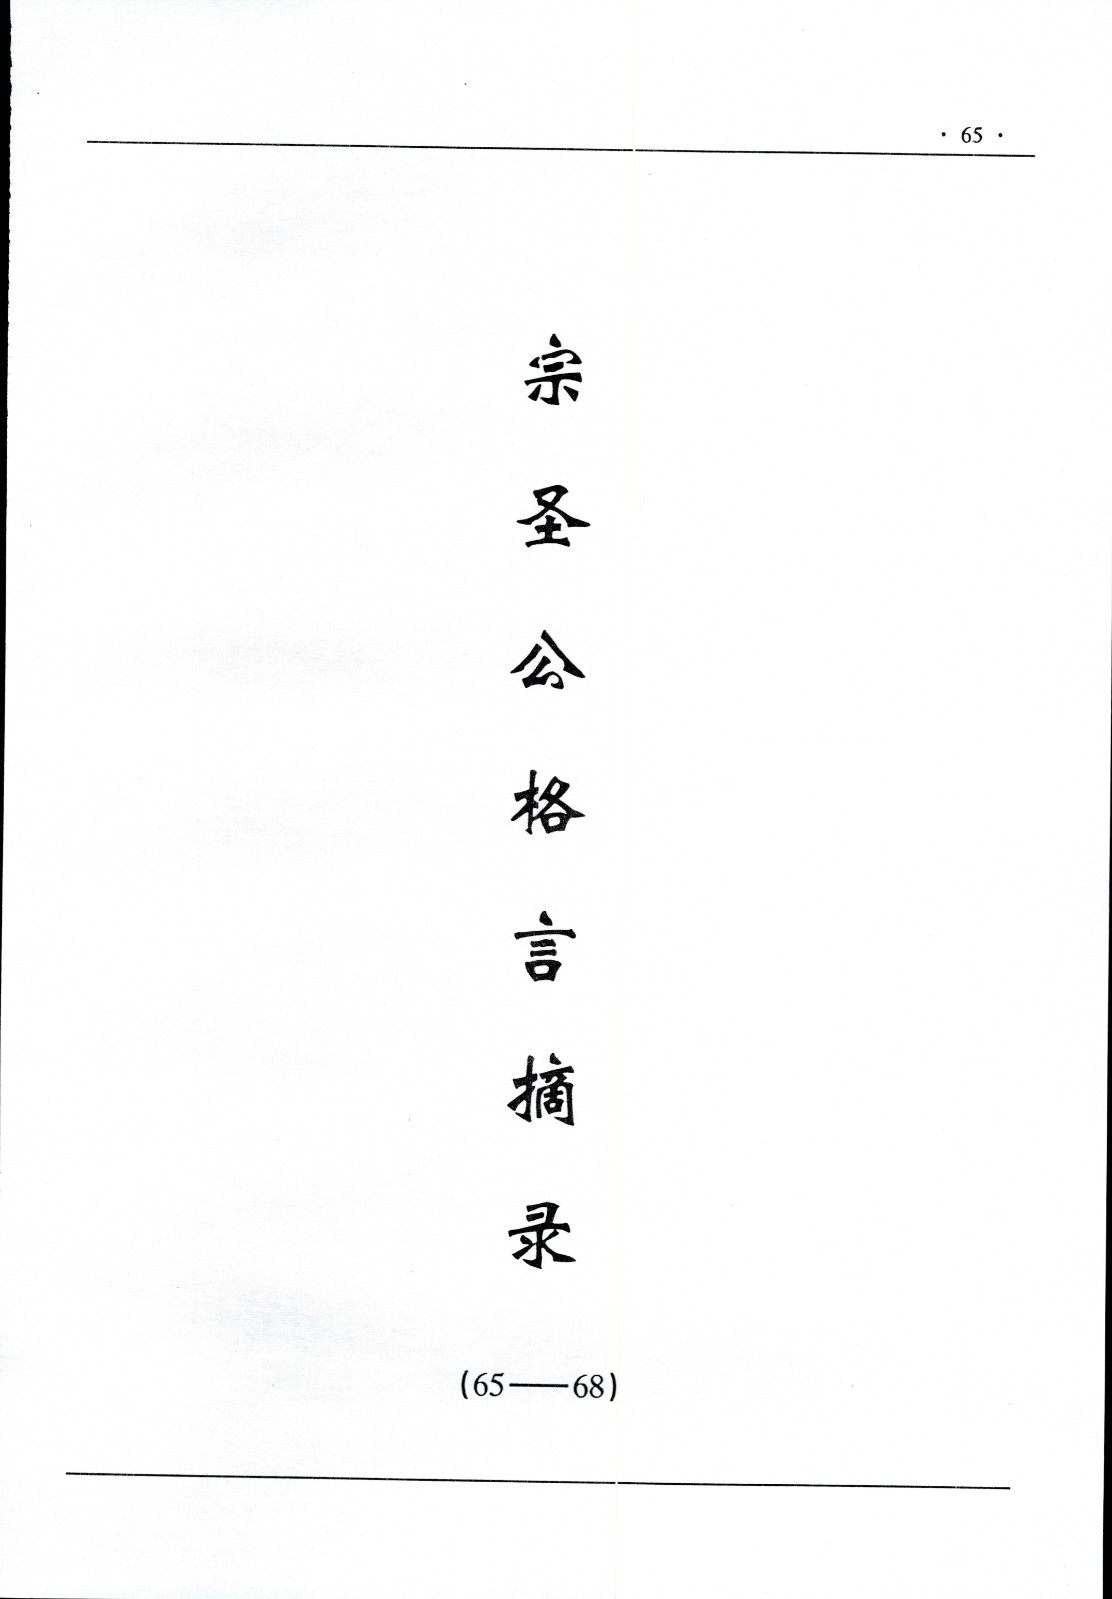 · 65 ·
宗圣公格言摘录
(65——68)